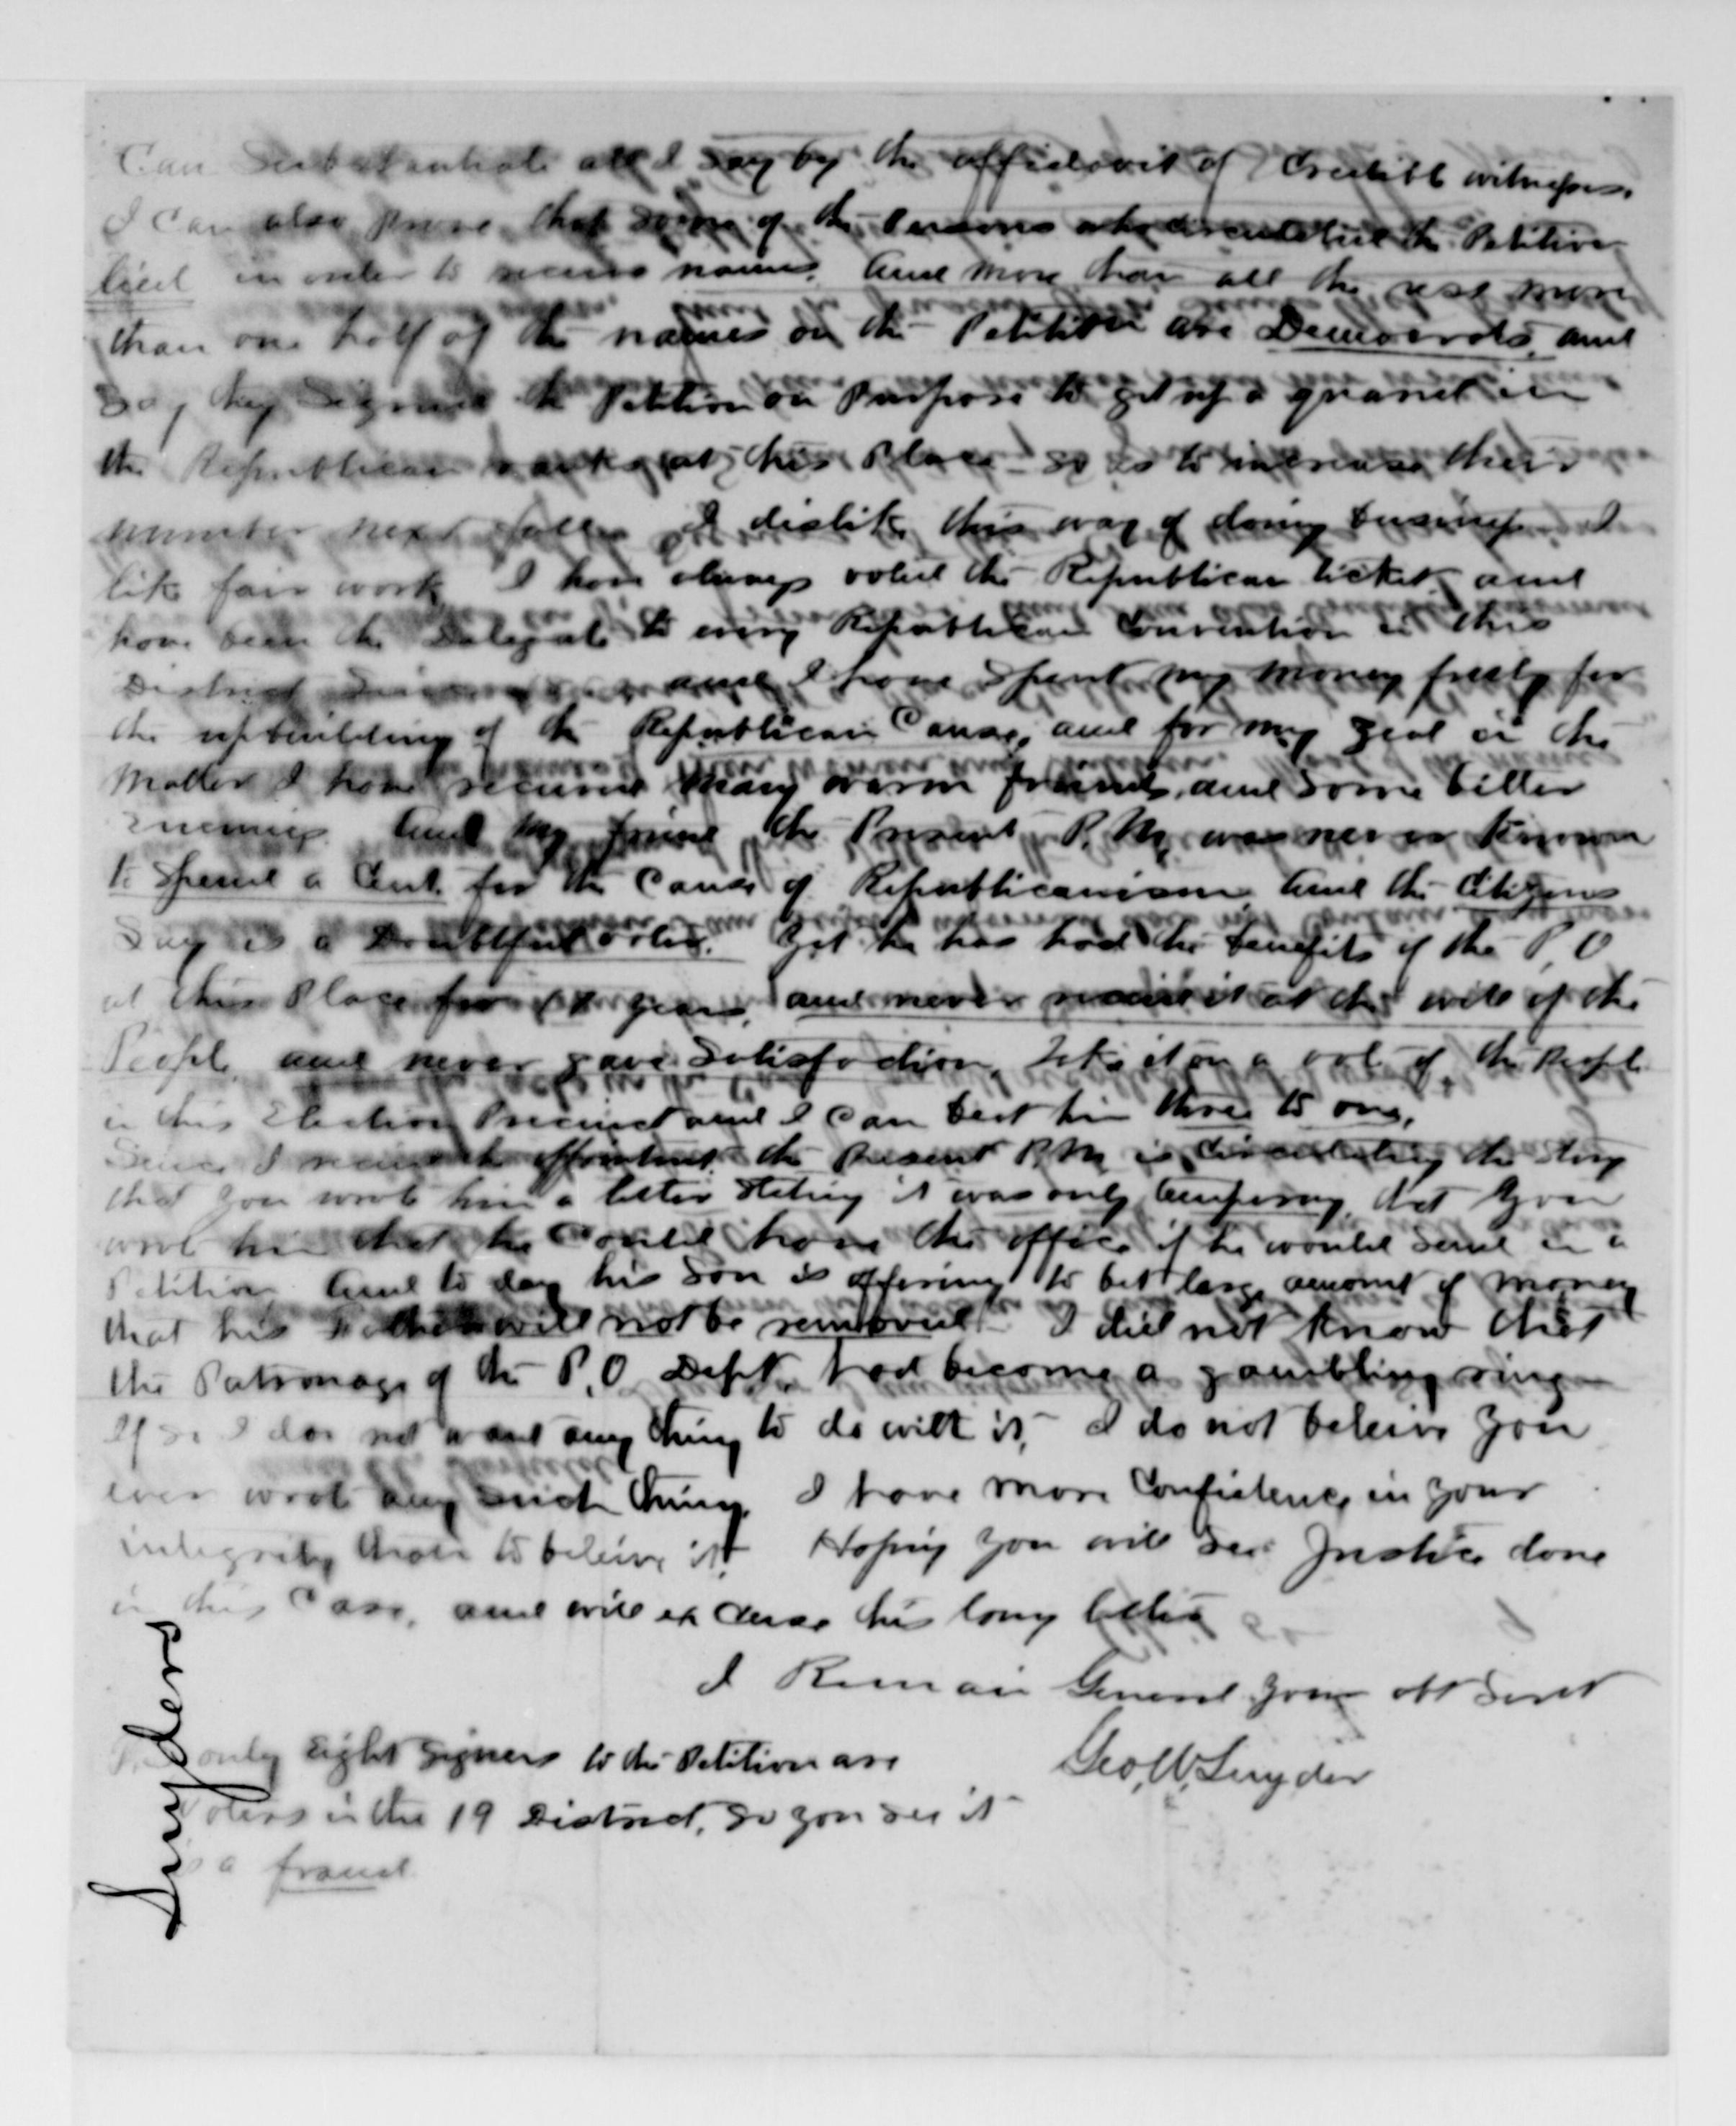 Can Substantiate all I Say by the affidavit of Credible witnesses.
I Can also prove that some of the Persons who circulated the Petition
lied in order to secure names. And more than all the rest more
than one half of the names on the Petition are Democrats, and
Say they Signed the Petition on Purpose to get up a quarrel in
the Republican ranks at this Place so as to increase their
number next fall. I dislike this way of doing business. I
like fair work I have always voted the Republican ticket and
have been the Delegate to every Republican Convention in this
District and I have Spent my money freely for
the upbuilding of the Republican Cause, and for my zeal in the
Matter I have received Many warm friends, and Some bitter
Enemies. And my friend the Present P. M. was never Known
to Spend a Cent for the Cause of Republicanism And the Citizens
Say is a Doubtful voter. Yet he has had the benefits of the P. O
at this Place for years, and never received it at the will of the
People, and never gave Satisfaction, take it on a vote of the People
in this Election Precinct and I Can beat him three to one.
Since I received the appointment the Present P. M. is Circulating the Story
that you wrote him a letter Stating it was only temporary, that You
wrote him that he Could have the office if he would Send in a
Petition And to day his Son is offering to bet large amount of money
that his Father will not be removed I did not Know that
the Patronage of the P. O Dept. had become a gambling ring
If so I do not want any thing to do with it, I do not beleive you
ever wrote any such thing, I have more Confidence in your
integrity than to beleive it. Hoping you will See Justice done
in this Case, and will excuse this long letter
I Remain General your obt Servt
Geo. W. Snyder
only Eight Signers to the Petition are
Voters in the 19 District, So you see it
is a fraud
Snyders